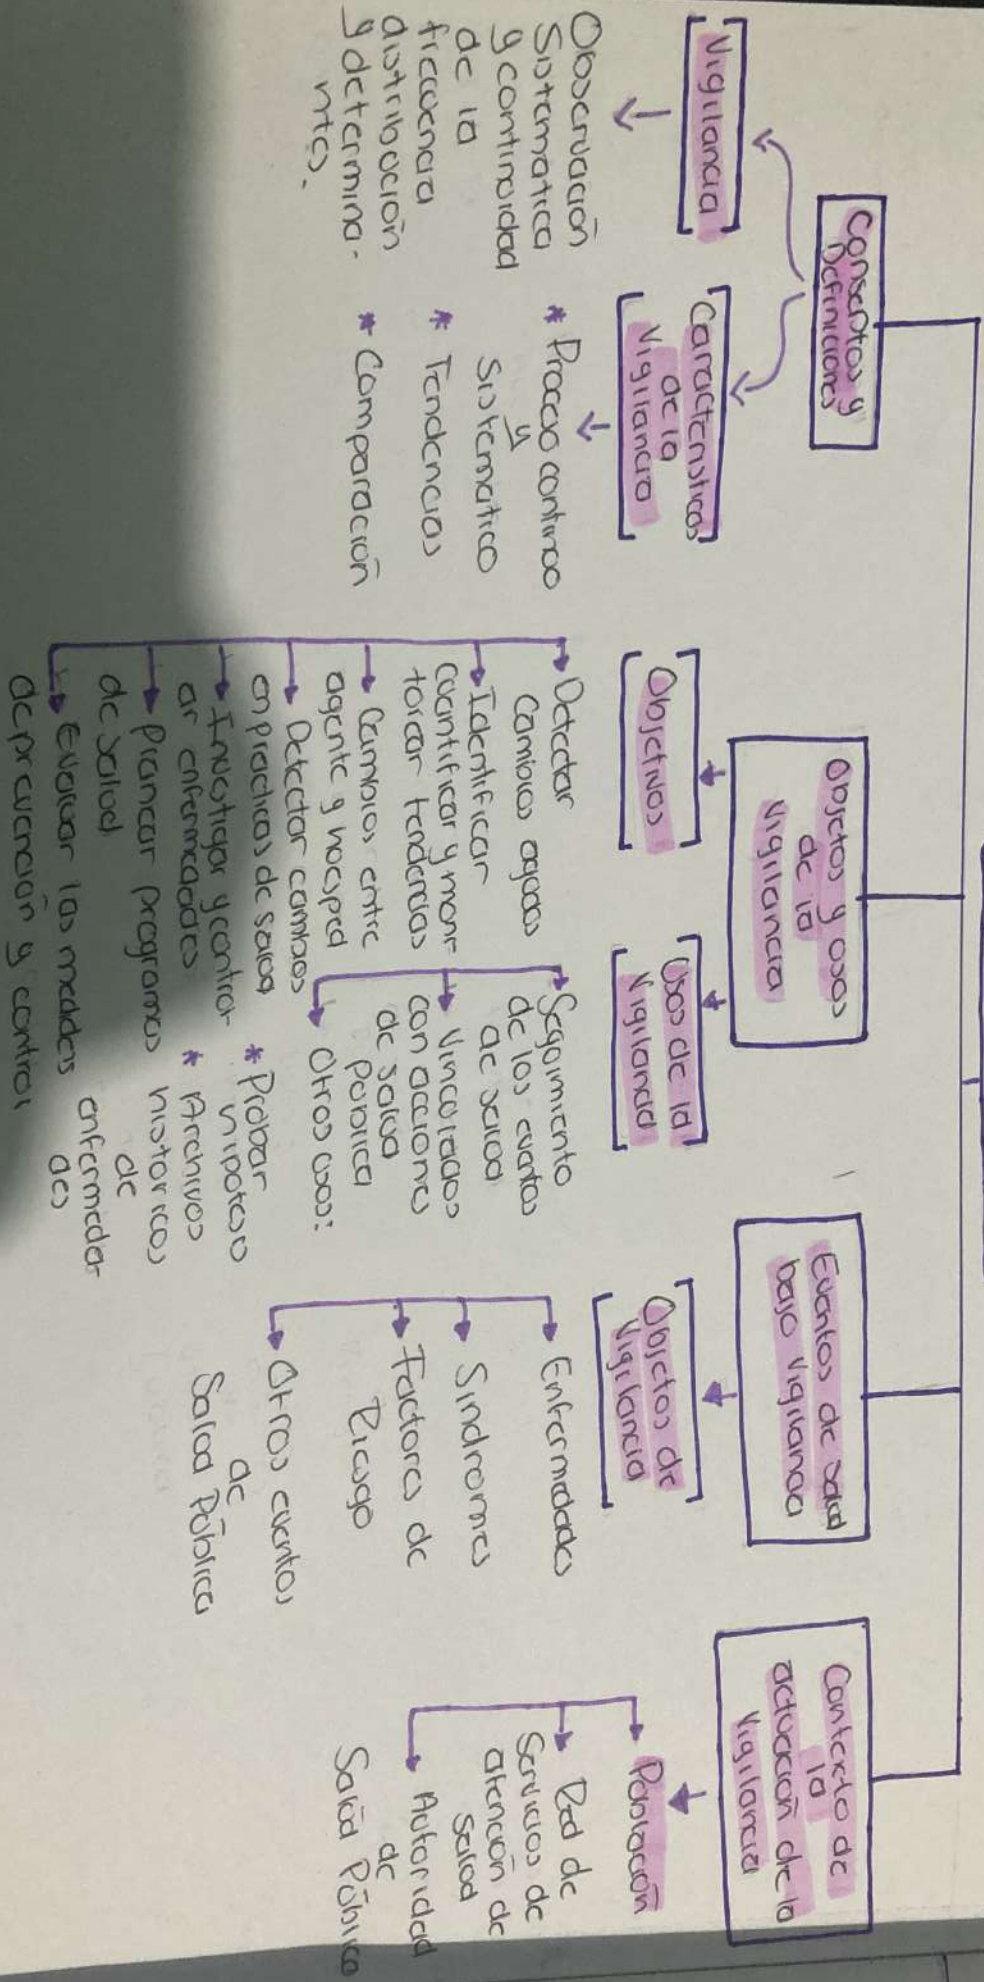 Conseptos y
Definiciones
[Vigilancia]
Observación
Sistematica
y continuidad
de la
frecuencia
distribución
y determina-
ntes.
[Caracteristicas
de la
Vigilancia]
* Proceso continuo
y
Sistematico
* Tendencias
* Comparación
Objetos y usos
de la
Vigilancia
[Objetivos]
Detectar
Cambios agudos
Identificar
cuantificar y moni-
torear tendencias
Cambios entre
agente y huesped
Detectar cambios
en practicas de salud
Investigar y contro-
ar enfermedades
Planear programas
de salud
Evaluar las medidas
de prevención y control
[Usos de la
Vigilancia]
Seguimiento
de los eventos
de salud
Vinculados
con acciones
de salud
pública
Otros usos:
* Probar
hipotesis
* Archivos
historicos
de
enfermeda-
des
Eventos de salud
bajo vigilancia
[Objetos de
Vigilancia]
Enfermedades
Sindromes
Factores de
Riesgo
Otros eventos
de
Salud Pública
Contexto de
la
actuación de la
Vigilancia
Población
Red de
Servicios de
atención de
salud
Autoridad
de
Salud Pública